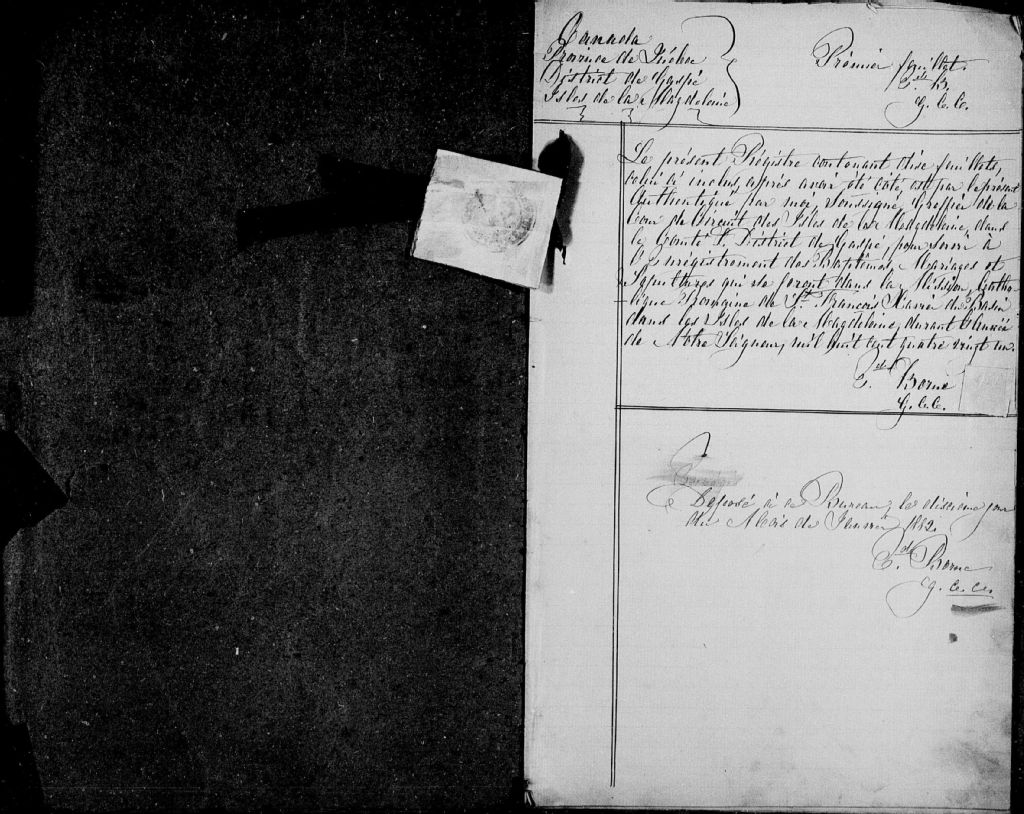 Canada
Province de Québec
District de Gaspé
Isles de la Magdeleine
Prémier feuillet.
Ed. B.
G. C. C.
Le présent Régistre contenant dise feuillets,
celui ci inclus, apprès avoir été coté, est par le présent
Authentiqué par moi, Soussigné, Greffier de la
Cour de Circuit des Isles de la Magdeleine, dans
le Comté & District de Gaspé, pour servir à
l'Enrégistrement des Baptêmes, Mariages et
Sépultures qui se feront dans la Mission Catho-
lique Romaine de St. François Xavier du Bassin
dans les Isles de la Magdeleine, durant l'Année
de Notre Seigneur, mil huit cent quatre vingt un.
Ed. Borne
G. C. C.
Déposé à ce Bureau, le dixième jour
du Mois de Janvier 1882.
Ed. Borne
G. C. C.